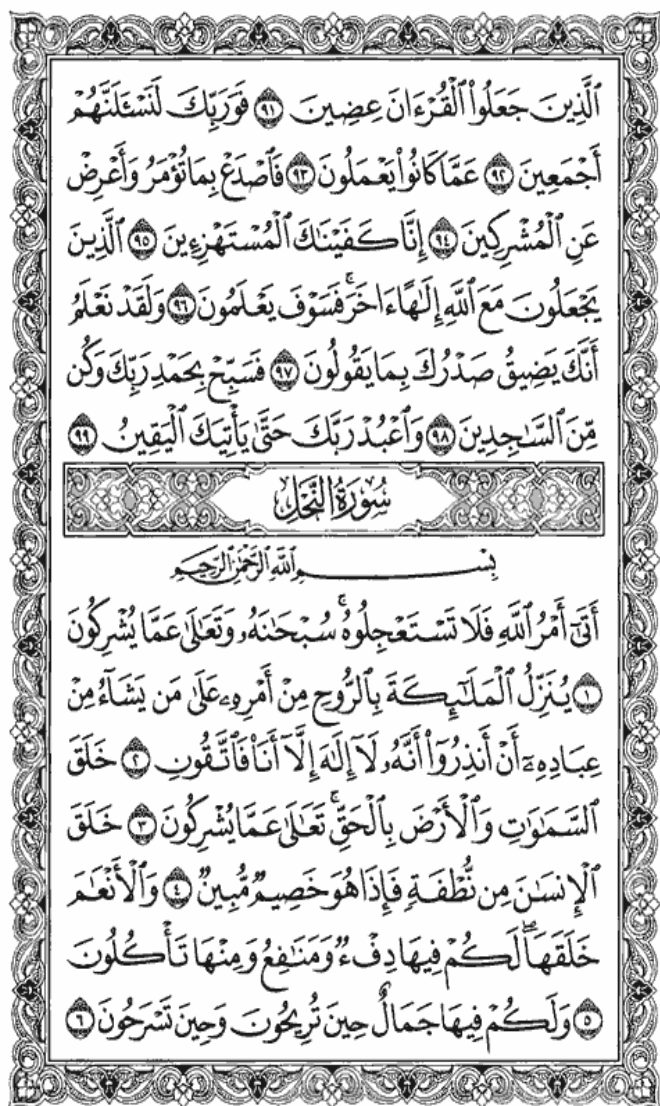 ٱلَّذِينَ جَعَلُوا۟ ٱلْقُرْءَانَ عِضِينَ ٩١ فَوَرَبِّكَ لَنَسْـَٔلَنَّهُمْ
أَجْمَعِينَ ٩٢ عَمَّا كَانُوا۟ يَعْمَلُونَ ٩٣ فَٱصْدَعْ بِمَا تُؤْمَرُ وَأَعْرِضْ
عَنِ ٱلْمُشْرِكِينَ ٩٤ إِنَّا كَفَيْنَٰكَ ٱلْمُسْتَهْزِءِينَ ٩٥ ٱلَّذِينَ
يَجْعَلُونَ مَعَ ٱللَّهِ إِلَٰهًا ءَاخَرَ ۚ فَسَوْفَ يَعْلَمُونَ ٩٦ وَلَقَدْ نَعْلَمُ
أَنَّكَ يَضِيقُ صَدْرُكَ بِمَا يَقُولُونَ ٩٧ فَسَبِّحْ بِحَمْدِ رَبِّكَ وَكُن
مِّنَ ٱلسَّٰجِدِينَ ٩٨ وَٱعْبُدْ رَبَّكَ حَتَّىٰ يَأْتِيَكَ ٱلْيَقِينُ ٩٩
سُورَةُ النَّحْلِ
بِسْمِ ٱللَّهِ ٱلرَّحْمَٰنِ ٱلرَّحِيمِ
أَتَىٰٓ أَمْرُ ٱللَّهِ فَلَا تَسْتَعْجِلُوهُ ۚ سُبْحَٰنَهُۥ وَتَعَٰلَىٰ عَمَّا يُشْرِكُونَ
١ يُنَزِّلُ ٱلْمَلَٰٓئِكَةَ بِٱلرُّوحِ مِنْ أَمْرِهِۦ عَلَىٰ مَن يَشَآءُ مِنْ
عِبَادِهِۦٓ أَنْ أَنذِرُوٓا۟ أَنَّهُۥ لَآ إِلَٰهَ إِلَّآ أَنَا۠ فَٱتَّقُونِ ٢ خَلَقَ
ٱلسَّمَٰوَٰتِ وَٱلْأَرْضَ بِٱلْحَقِّ ۚ تَعَٰلَىٰ عَمَّا يُشْرِكُونَ ٣ خَلَقَ
ٱلْإِنسَٰنَ مِن نُّطْفَةٍ فَإِذَا هُوَ خَصِيمٌ مُّبِينٌ ٤ وَٱلْأَنْعَٰمَ
خَلَقَهَا ۗ لَكُمْ فِيهَا دِفْءٌ وَمَنَٰفِعُ وَمِنْهَا تَأْكُلُونَ
٥ وَلَكُمْ فِيهَا جَمَالٌ حِينَ تُرِيحُونَ وَحِينَ تَسْرَحُونَ ٦